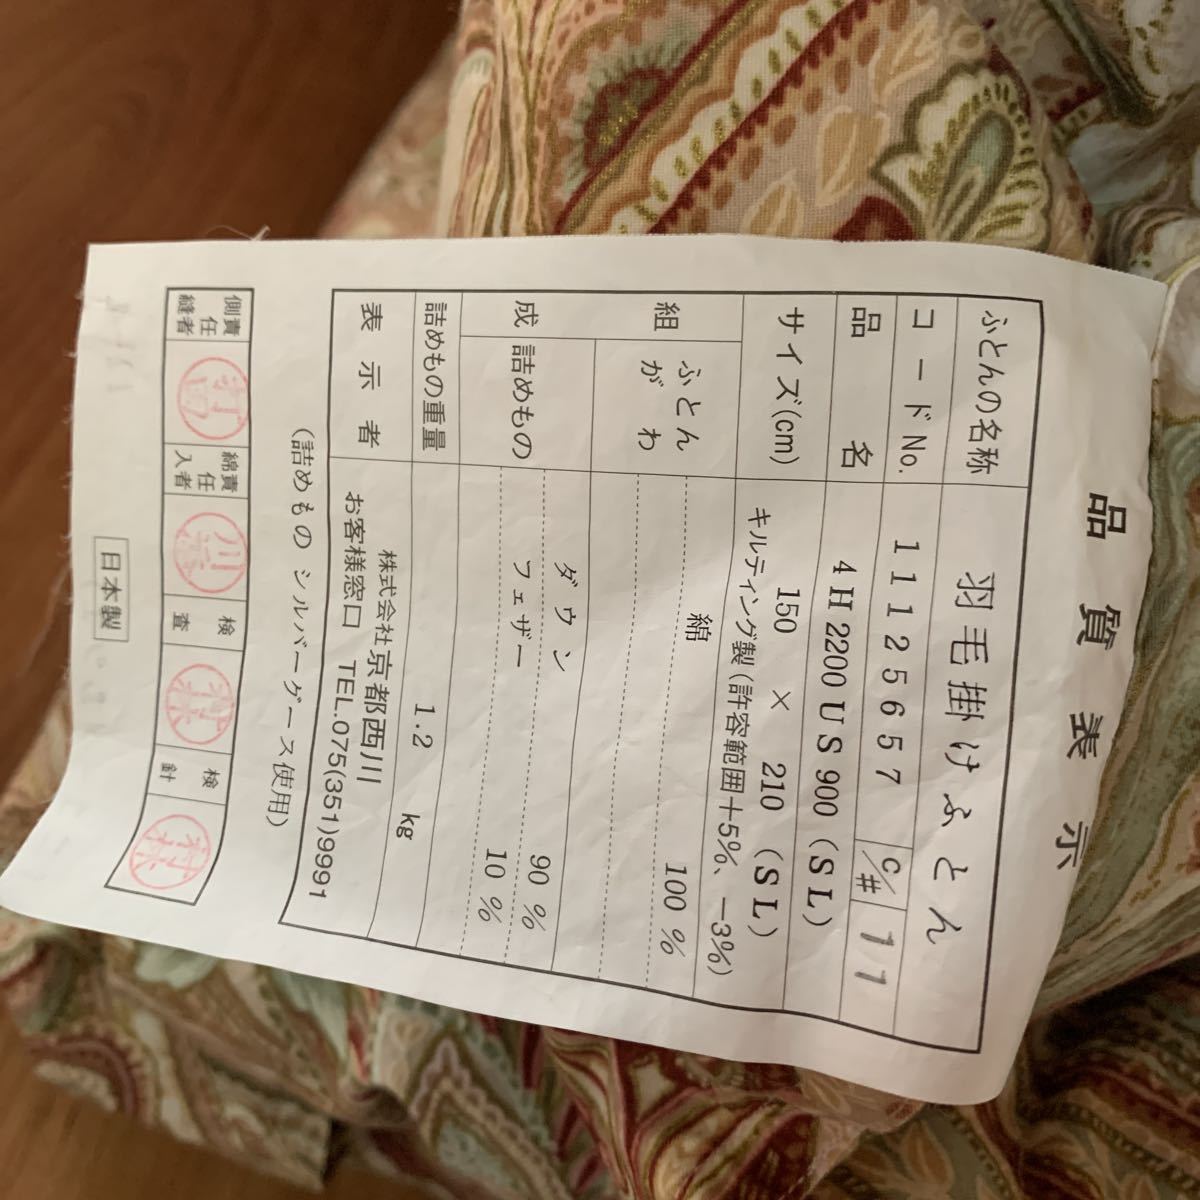 品質表示
ふとんの名称 羽毛掛けふとん
コードNo. 11125657 C/# 11
品名 4H2200US900(SL)
サイズ(cm) 150 × 210 (SL)
キルティング製(許容範囲+5%、−3%)
組成 ふとんがわ 綿 100 %
詰めもの ダウン 90 %
フェザー 10 %
詰めもの重量 1.2 kg
表示者 株式会社京都西川
お客様窓口 TEL.075(351)9991
(詰めもの シルバーグース使用)
側責任縫者 綿責任入者 川 検査 村林 検針 村林
日本製